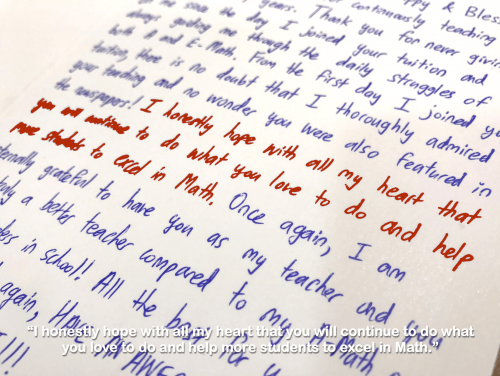 years. Thank you for never giving
me since the day I joined your tuition and
always guiding me through the daily struggles of
both A and E. Math. From the first day I joined
tuition, there is no doubt that I thoroughly admired
your teaching and no wonder you were also featured in
the newspapers! I honestly hope with all my heart that
you will continue to do what you love to do and help
more students to excel in Math. Once again, I am
grateful to have you as my teacher and you
a better teacher compared to my A. Math
in school!! All the for
again,
"I honestly hope with all my heart that you will continue to do what
you love to do and help more students to excel in Math."